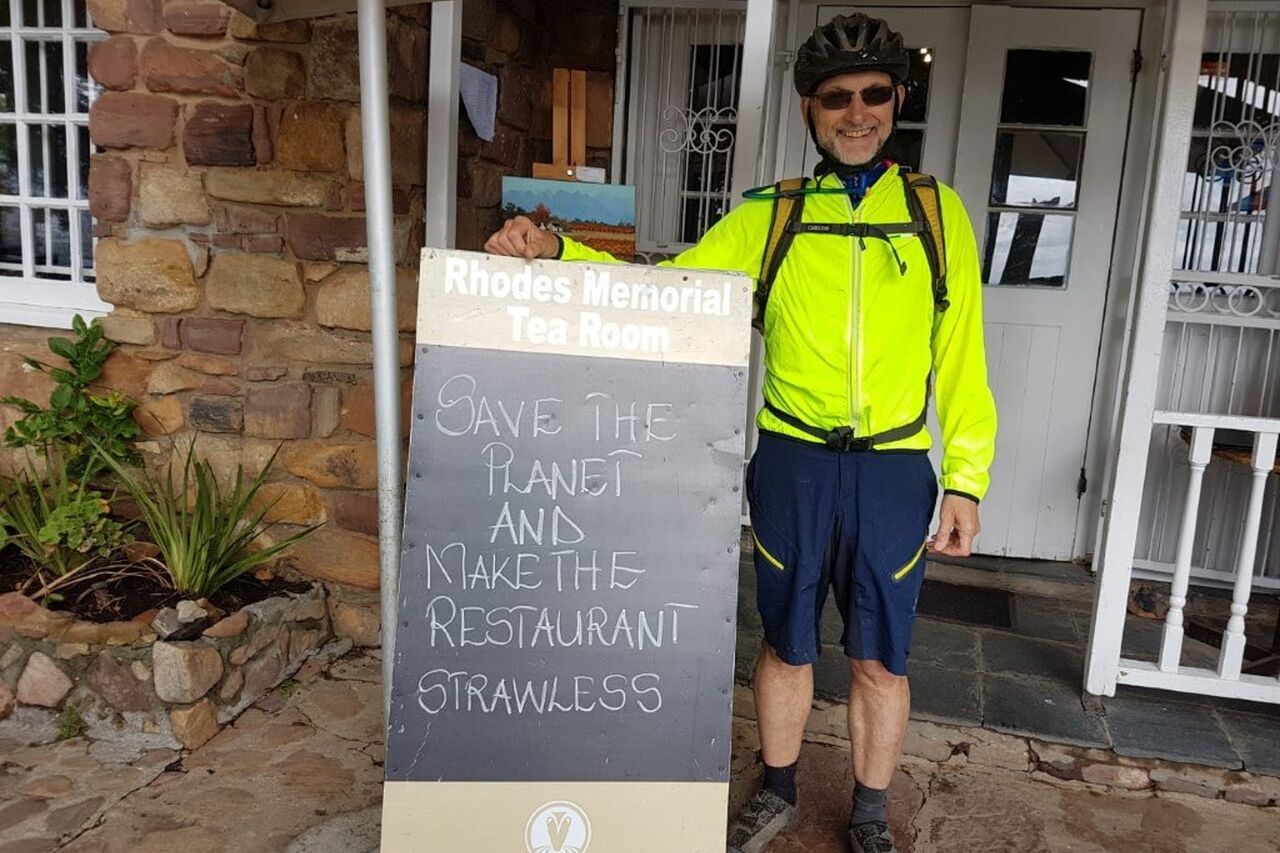 Rhodes Memorial
Tea Room
SAVE THE
PLANET
AND
MAKE THE
RESTAURANT
STRAWLESS
V